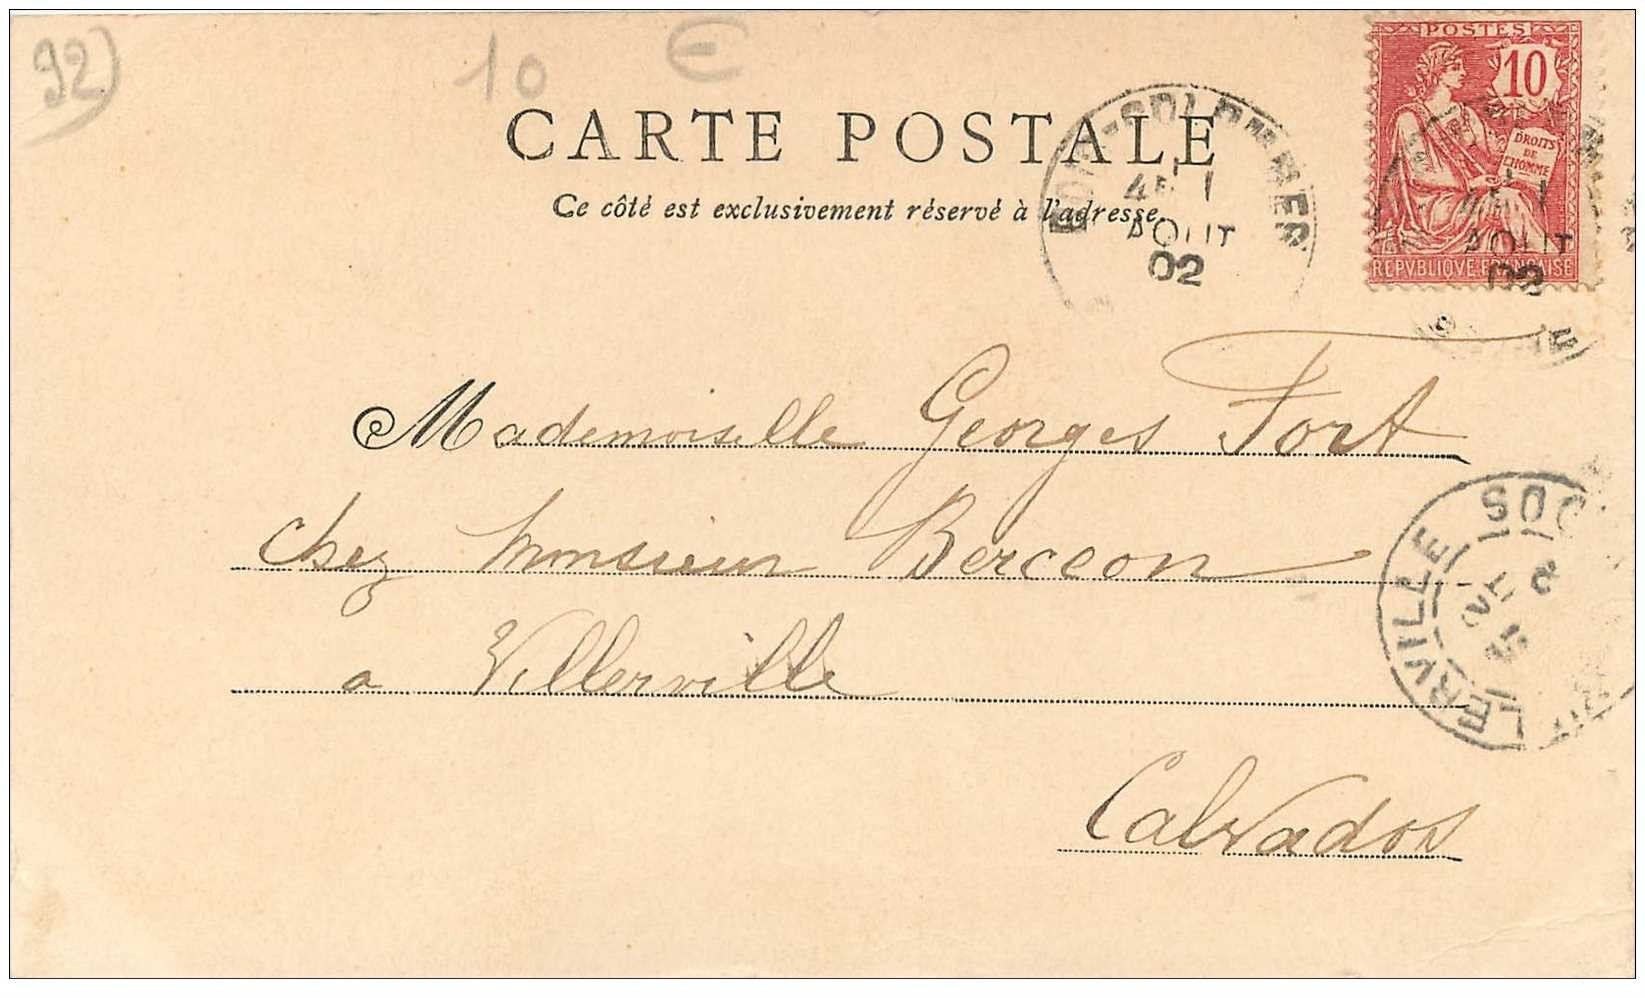 92)
10 €
CARTE POSTALE
Ce côté est exclusivement réservé à l'adresse.
POSTES
10
DROITS
DE
L'HOMME
REPVBLIQVE FRANÇAISE
AOUT
02
AOUT
02
Mademoiselle Georges Fort
chez Monsieur Berceon
a Villerville
Calvados
LERVILLE